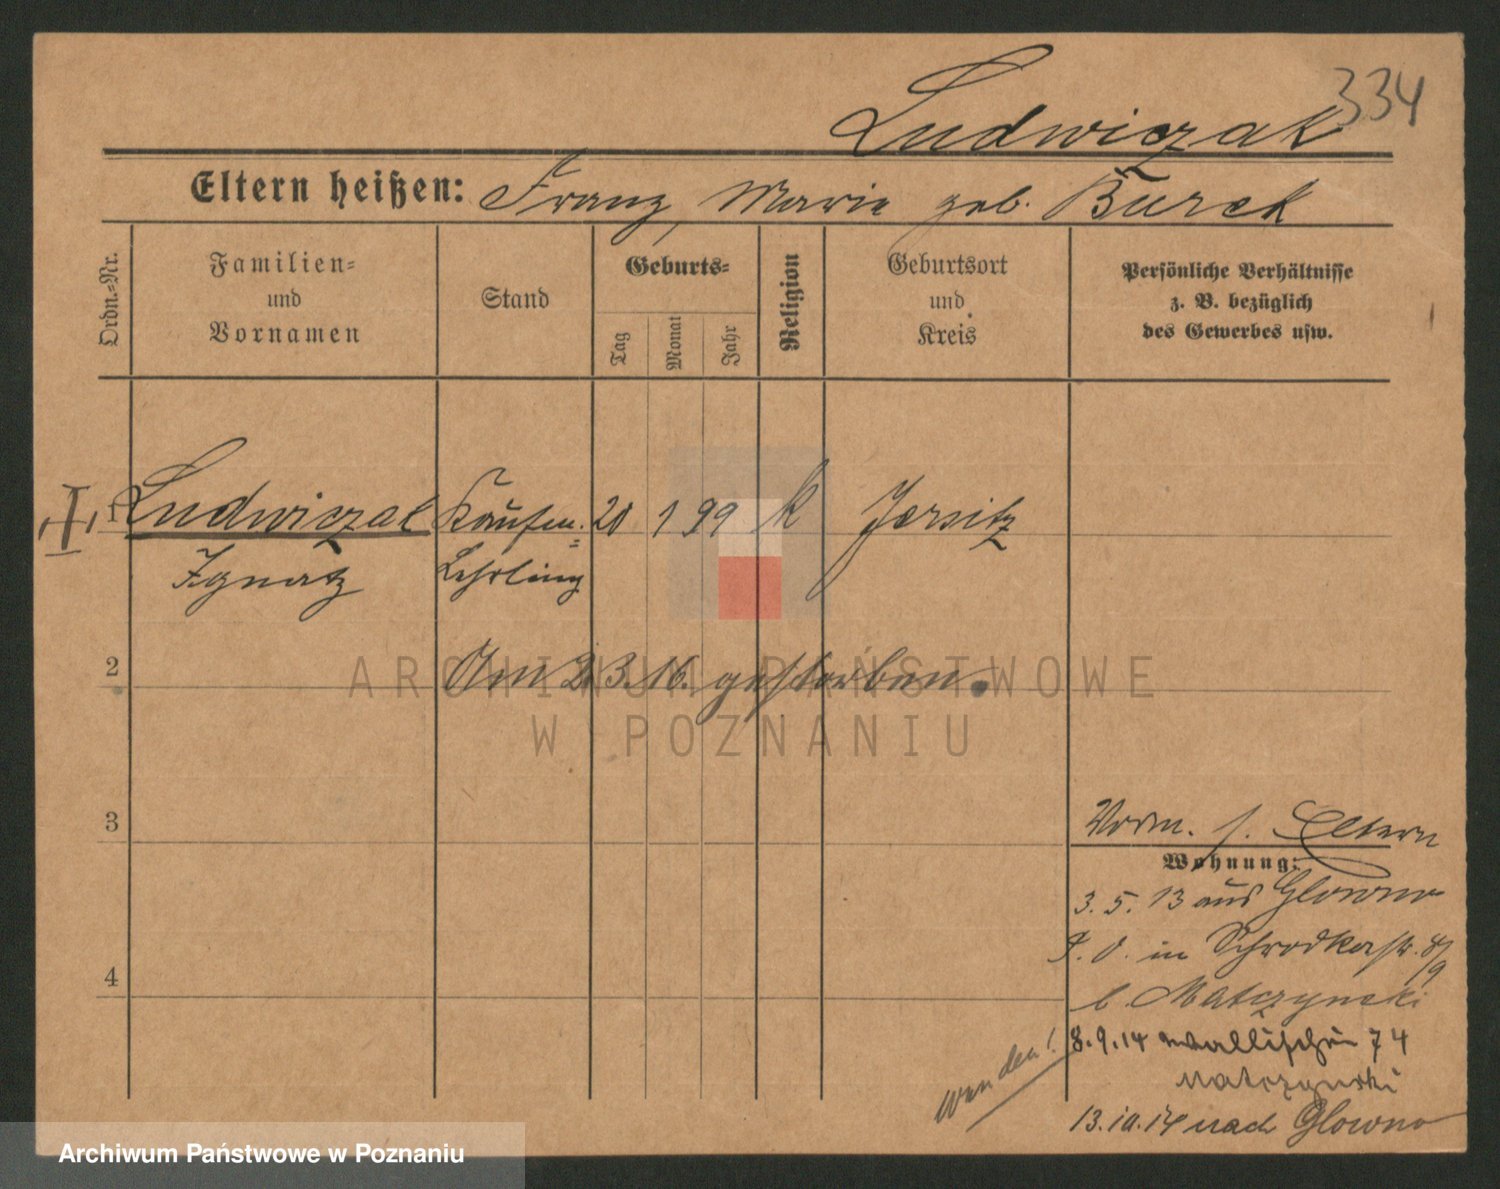 334
Ludwiczak
Eltern heißen: Franz, Marie geb. Burek
Ordn.=Nr.
Familien=
und
Vornamen
Stand
Geburts=
Tag
Monat
Jahr
Religion
Geburtsort
und
Kreis
Persönliche Verhältnisse
z. B. bezüglich
des Gewerbes usw.
1 Ludwiczak Kaufm.= 20 1 99 k Jersitz
Ignatz Lehrling
2 Am 2.3.16. gestorben.
3
4
Vorm. s. Eltern
Wohnung:
3. 5. 13 aus Glowno
P. O. in Schrodkastr. 8/9
b. Matczynski
8.9.14 Wallischei 74
Matczynski
13.10.14 nach Glowno
ARCHIWUM PAŃSTWOWE
W POZNANIU
Archiwum Państwowe w Poznaniu